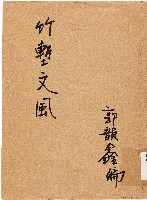 竹塹文風
郭韻鑫編